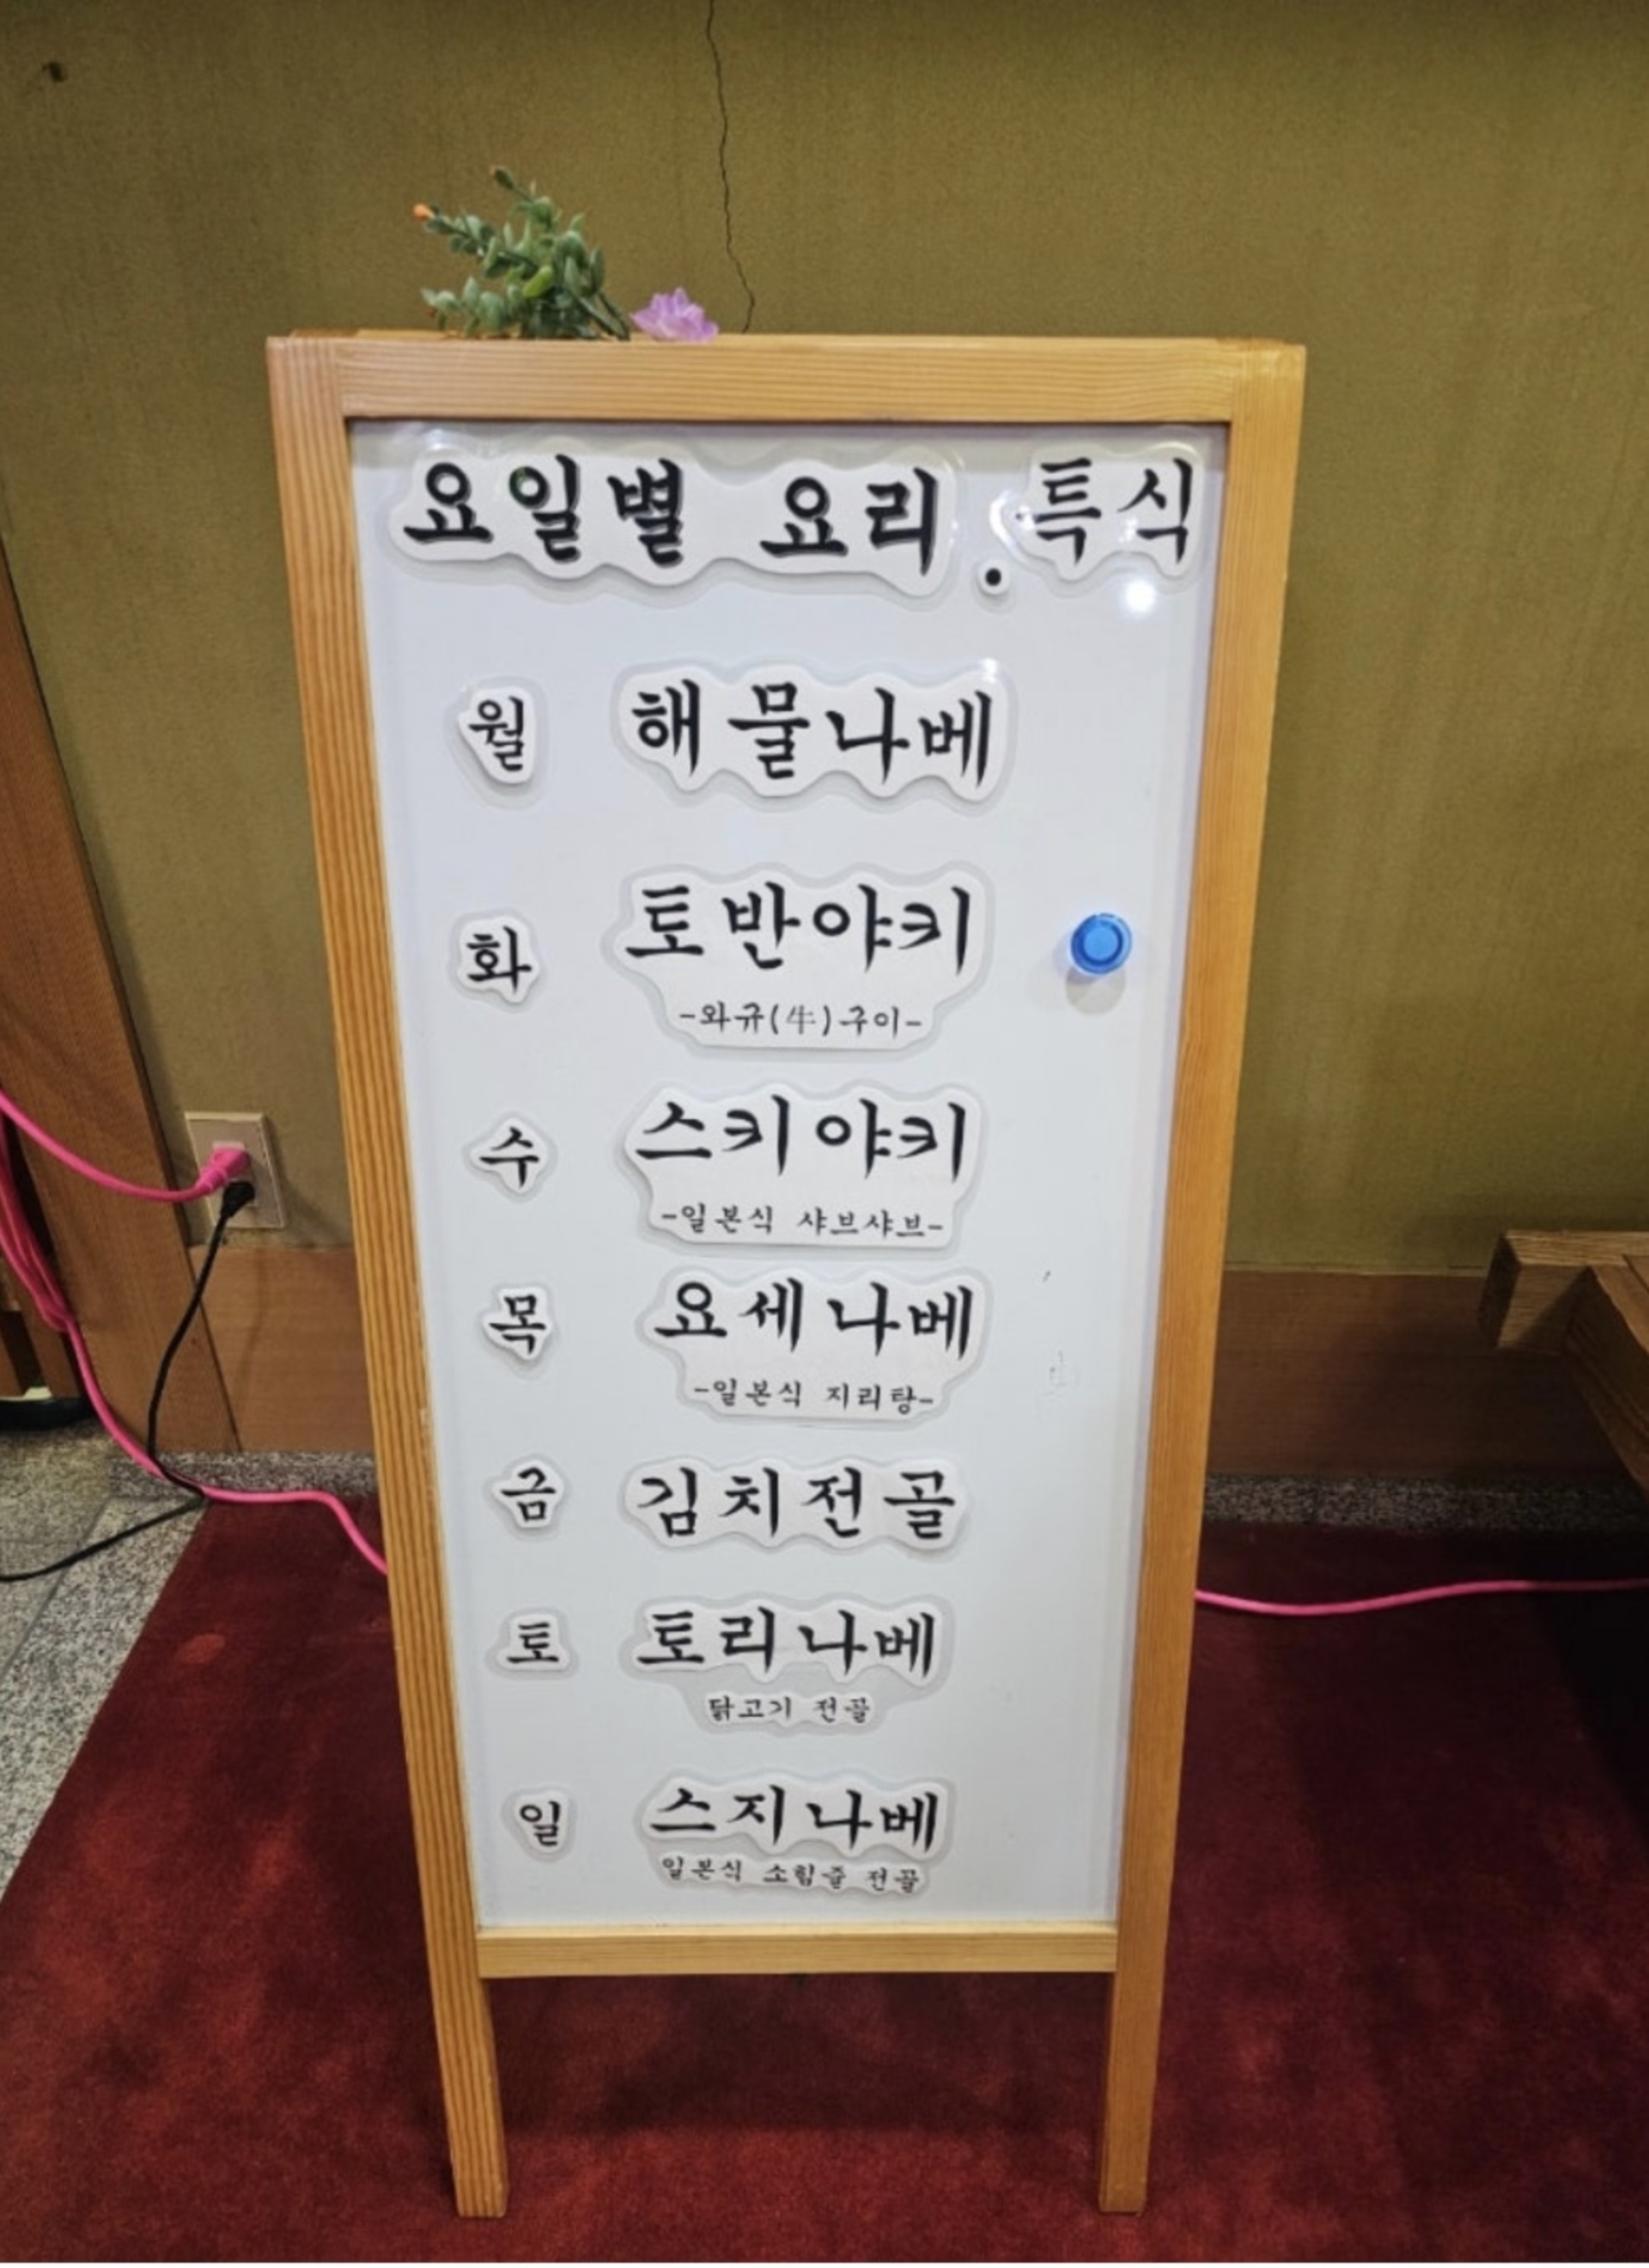 요일별 요리.특식
월 해물나베
화 토반야키
-와규(牛)구이-
수 스키야키
-일본식 샤브샤브-
목 요세나베
-일본식 지리탕-
금 김치전골
토 토리나베
닭고기 전골
일 스지나베
일본식 소힘줄 전골